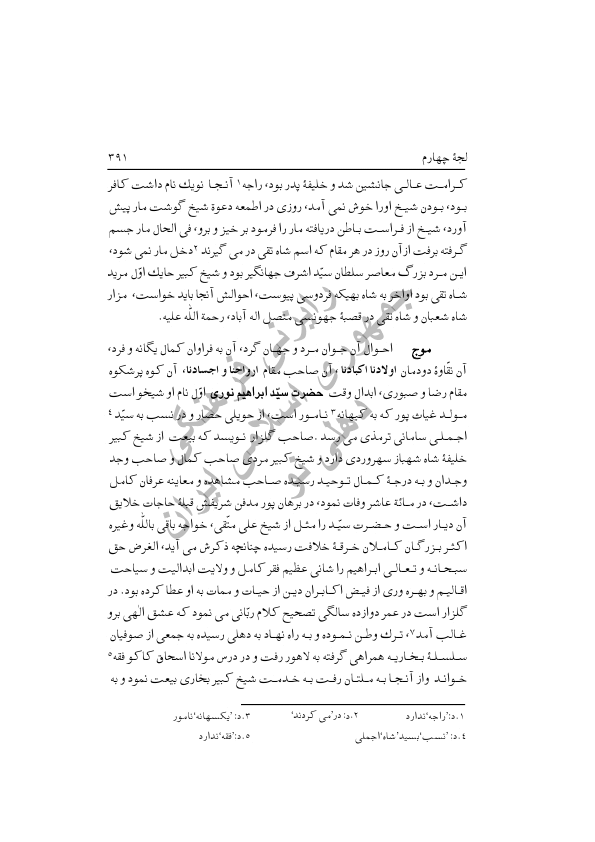 لجهٔ چهارم ۳۹۱
کرامت عالی جانشین شد و خلیفهٔ پدر بود، راجه۱ آنجا نویك نام داشت کافر
بود، بودن شیخ اورا خوش نمی آمد، روزی در اطمعه دعوة شیخ گوشت مار پیش
آورد، شیخ از فراست باطن دریافته مار را فرمود بر خیز و برو، فی الحال مار جسم
گرفته برفت ازآن روز در هر مقام که اسم شاه تقی در می گیرند ۲دخل مار نمی شود،
این مرد بزرگ معاصر سلطان سیّد اشرف جهانگیر بود و شیخ کبیر حایك اوّل مرید
شاه تقی بود اواخر به شاه بهیکه فردوسی پیوست، احوالش آنجا باید خواست، مزار
شاه شعبان و شاه تقی در قصبهٔ جهونسی متصل اله آباد، رحمة اللّٰه علیه.
موج احوال آن جوان مرد و جهان گرد، آن به فراوان کمال یگانه و فرد،
آن نقّاوهٔ دودمان اولادنا اکبادنا، آن صاحب مقام ارواحنا و اجسادنا، آن کوه پرشکوه
مقام رضا و صبوری، ابدال وقت حضرت سیّد ابراهیم نوری اوّل نام او شیخو است
مولد غیاث پور که به کیهانه۳ نامور است، از حویلی حصار و در نسب به سیّد ۴
اجملی سامانی ترمذی می رسد .صاحب گلزار نویسد که بیعت از شیخ کبیر
خلیفهٔ شاه شهباز سهروردی دارد و شیخ کبیر مردی صاحب کمال و صاحب وجد
وجدان و به درجهٔ کمال توحید رسیده صاحب مشاهده و معاینه عرفان کامل
داشت، در مائة عاشر وفات نمود، در برهان پور مدفن شریفش قبلهٔ حاجات خلایق
آن دیار است و حضرت سیّد را مثل از شیخ علی متّقی، خواجه باقی باللّٰه وغیره
اکثر بزرگان کاملان خرقهٔ خلافت رسیده چنانچه ذکرش می آید، الغرض حق
سبحانه و تعالی ابراهیم را شانی عظیم فقر کامل و ولایت ابدالیت و سیاحت
اقالیم و بهره وری از فیض اکابران دین از حیات و ممات به او عطا کرده بود. در
گلزار است در عمر دوازده سالگی تصحیح کلام ربّانی می نمود که عشق الٰهی برو
غالب آمد۷، ترك وطن نموده و به راه نهاد به دهلی رسیده به جمعی از صوفیان
سلسلهٔ بخاریه همراهی گرفته به لاهور رفت و در درس مولانا اسحاق کاکو فقه۵
خواند واز آنجا به ملتان رفت به خدمت شیخ کبیر بخاری بیعت نمود و به
۱.د:'راجه'ندارد ۲.د: در'می کردند' ۳.د:'یکسهانه'نامور
۴.د: 'نسب'بسید'شاه'اجملی ۵.د:'فقه'ندارد
رایزنی فرهنگی
جمهوری اسلامی ایران
دهلی نو